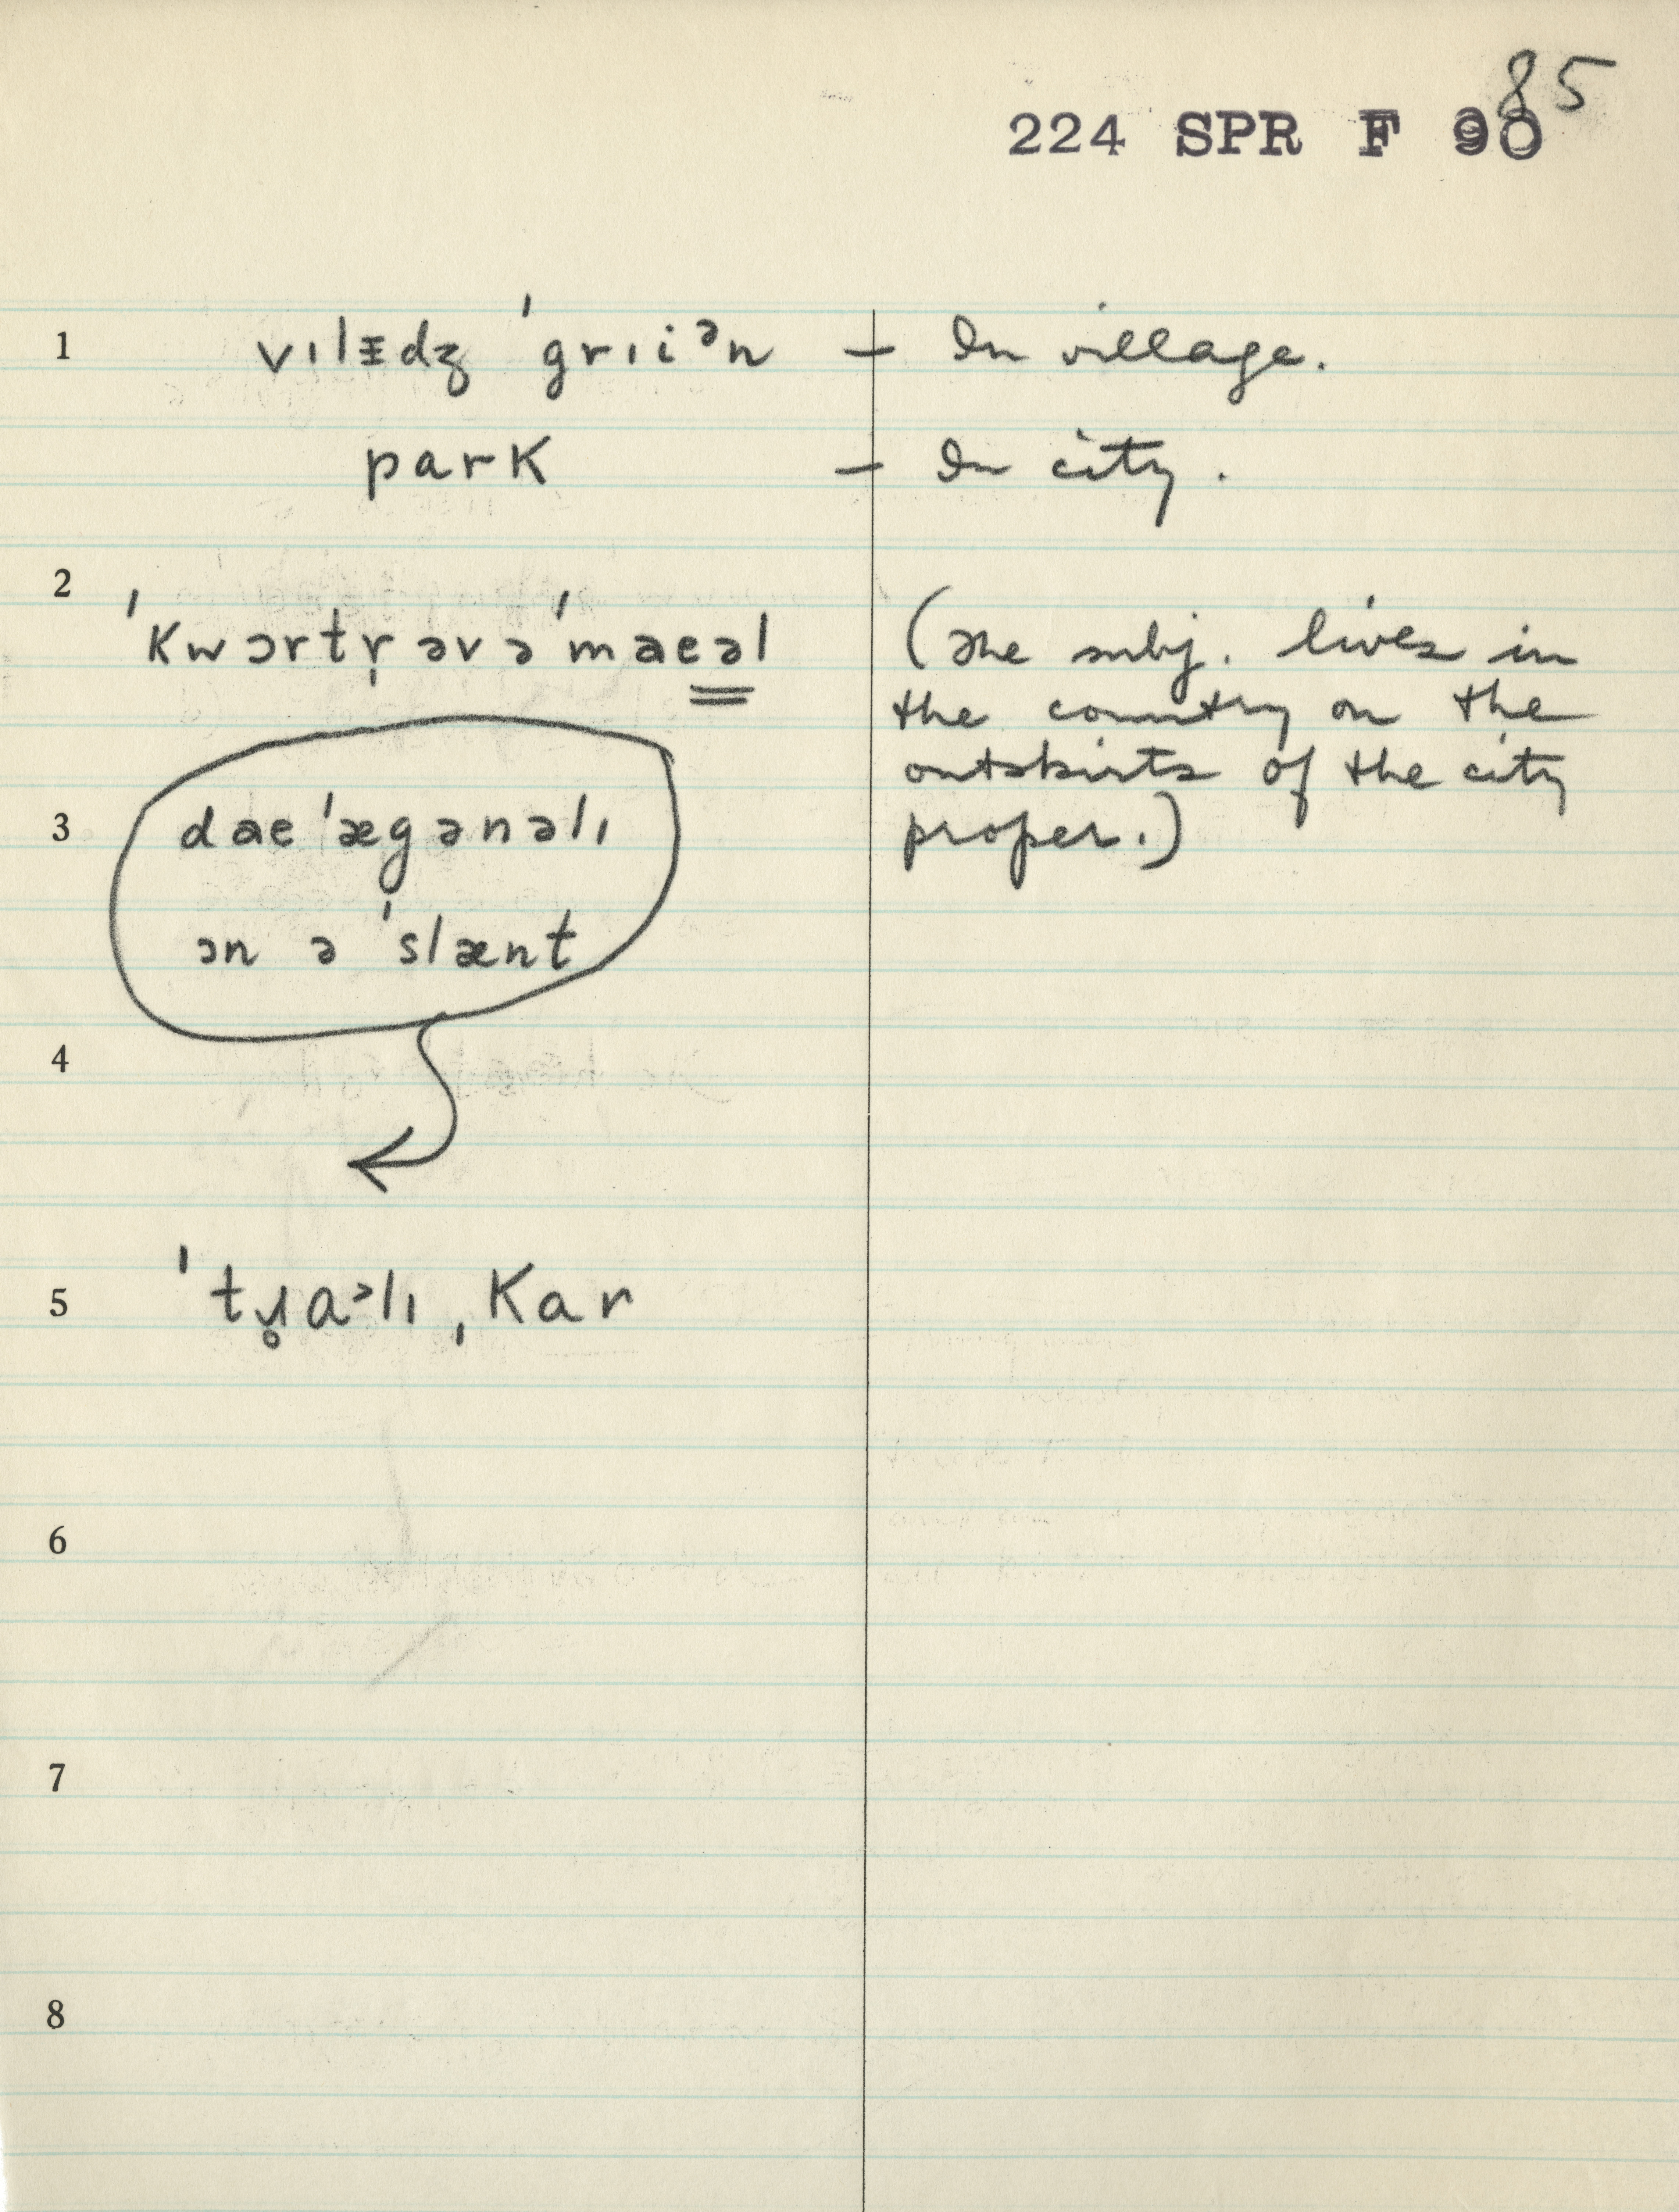 85
224 SPR F 90
1 vılᵻdʒ ˈgrıiᵊn — In village.
park — In city.
2 ˈkwɔrtr̩ əvə ˈmaeəl (The subj. lives in
the country on the
outskirts of the city
proper.)
3 dae ˈægənəlı
ɔn ə ˈslænt
4
5 ˈtɹ̥ɑᵊlı ˌkar
6
7
8